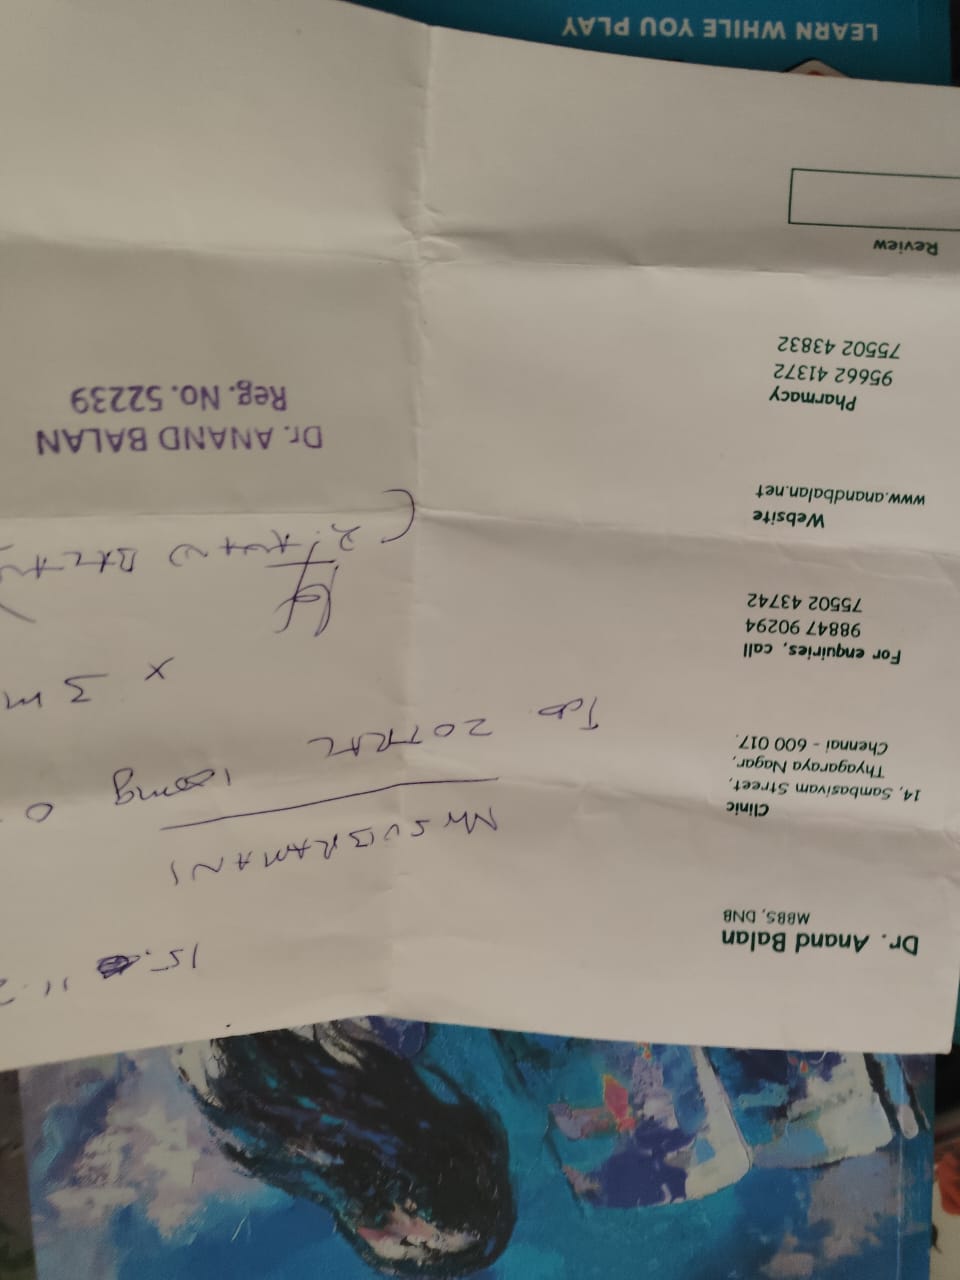 Dr. Anand Balan
MBBS, DNB
Clinic
14, Sambasivam Street,
Thyagaraya Nagar,
Chennai - 600 017.
For enquiries, call
98847 90294
75502 43742
Website
www.anandbalan.net
Pharmacy
95662 41372
75502 43832
Review
15. 11.
Mr SUBRAMANI
Tab ZOTRAL 100mg 0
x 3 m
Dr. ANAND BALAN
Reg. No. 52239
LEARN WHILE YOU PLAY